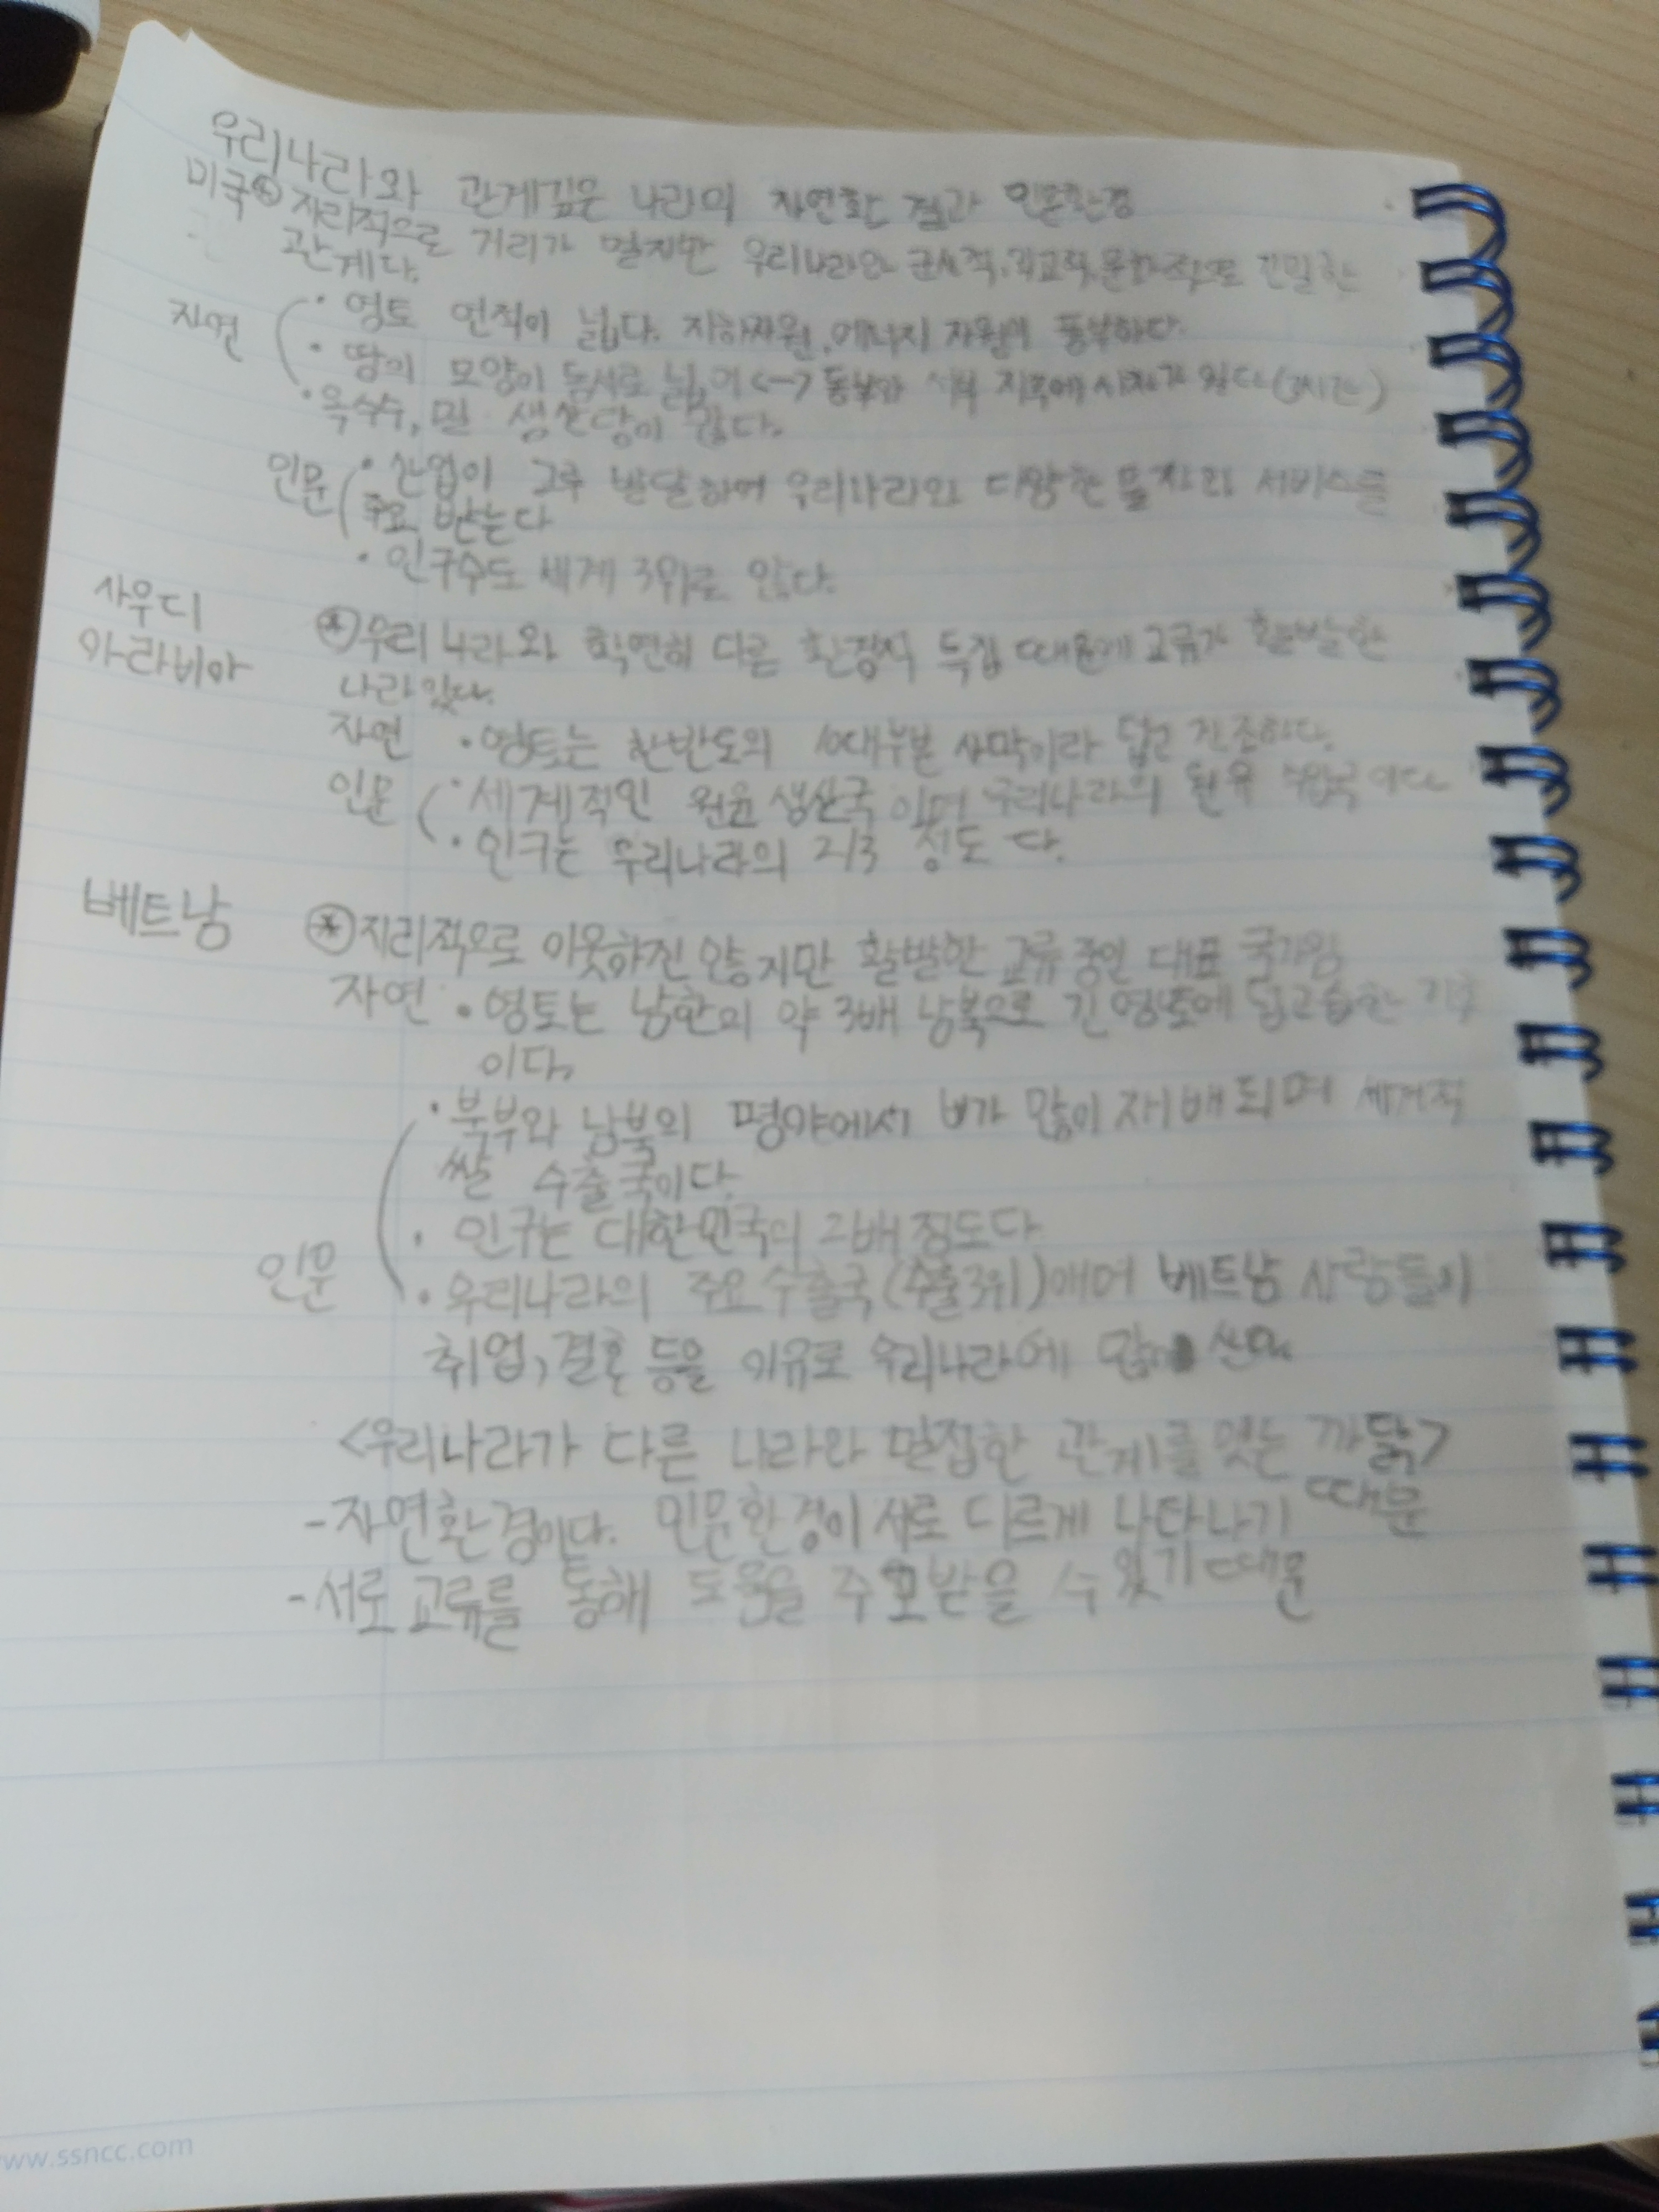 우리나라와 관계깊은 나라의 자연환경과 인문환경
미국 ⊛ 지리적으로 거리가 멀지만 우리나라와 군사적, 외교적, 문화적으로 긴밀한
관계다.
자연 · 영토 면적이 넓다. 지하자원, 에너지 자원이 풍부하다.
· 땅의 모양이 동서로 넓어 <-> 동부와 서부 지역에 시차가 있다
· 옥수수, 밀 생산량이 많다.
인문 · 산업이 고루 발달하여 우리나라와 다양한 물자와 서비스를
주고 받는다
· 인구수도 세계 3위로 많다.
사우디
아라비아
⊛ 우리나라와 확연히 다른 환경적 특징 때문에 교류가 활발한
나라있다.
자연 · 영토는 한반도의 10대부분 사막이라 덥고 건조하다.
인문 · 세계적인 원유 생산국이며 우리나라의 원유 수입국이다
· 인구는 우리나라의 2/3 정도다.
베트남 ⊛ 지리적으로 이웃하진 않지만 활발한 교류중인 대표 국가임
자연 · 영토는 남한의 약 3배 남북으로 긴 영토에 덥고 습한 기후
이다.
· 북부와 남북의 평야에서 벼가 많이 재배되며 세계적
쌀 수출국이다.
· 인구는 대한민국의 2배 정도다
인문 · 우리나라의 주요 수출국(수출3위)애며 베트남 사람들이
취업, 결혼 등을 이유로 우리나라에 많이
<우리나라가 다른 나라와 밀접한 관계를 맺는 까닭>
- 자연환경이다. 인문환경이 서로 다르게 나타나기 때문
- 서로 교류를 통해 도움을 주고받을 수 있기 때문
www.ssncc.com